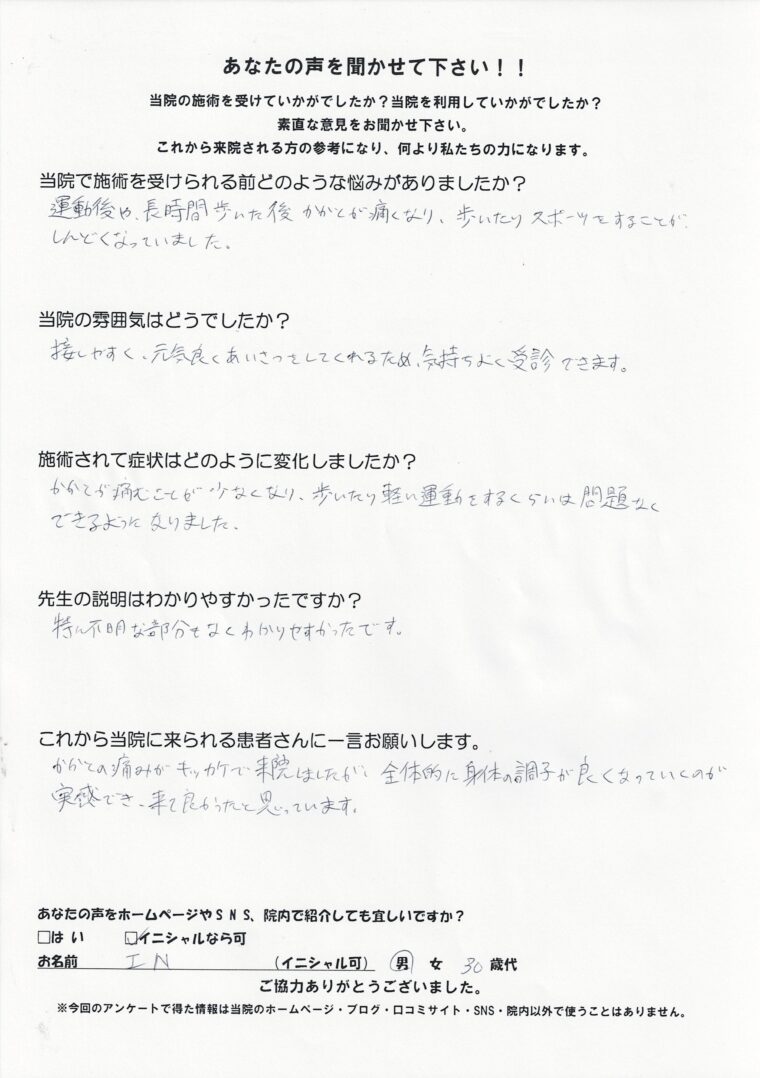 あなたの声を聞かせて下さい！！
当院の施術を受けていかがでしたか？当院を利用していかがでしたか？
素直な意見をお聞かせ下さい。
これから来院される方の参考になり、何より私たちの力になります。
当院で施術を受けられる前どのような悩みがありましたか？
運動後や、長時間歩いた後かかとが痛くなり、歩いたりスポーツをすることが
しんどくなっていました。
当院の雰囲気はどうでしたか？
接しやすく、元気良くあいさつをしてくれるため、気持ちよく受診できます。
施術されて症状はどのように変化しましたか？
かかとが痛むことが少なくなり、歩いたり軽い運動をするくらいは問題なく
できるようになりました。
先生の説明はわかりやすかったですか？
特に不明な部分もなくわかりやすかったです。
これから当院に来られる患者さんに一言お願いします。
かかとの痛みがキッカケで来院しましたが、全体的に身体の調子が良くなっていくのが
実感でき、来て良かったと思っています。
あなたの声をホームページやSNS、院内で紹介しても宜しいですか？
□はい ☑イニシャルなら可
お名前 I N (イニシャル可) 男 女 30歳代
ご協力ありがとうございました。
※今回のアンケートで得た情報は当院のホームページ・ブログ・口コミサイト・SNS・院内以外で使うことはありません。